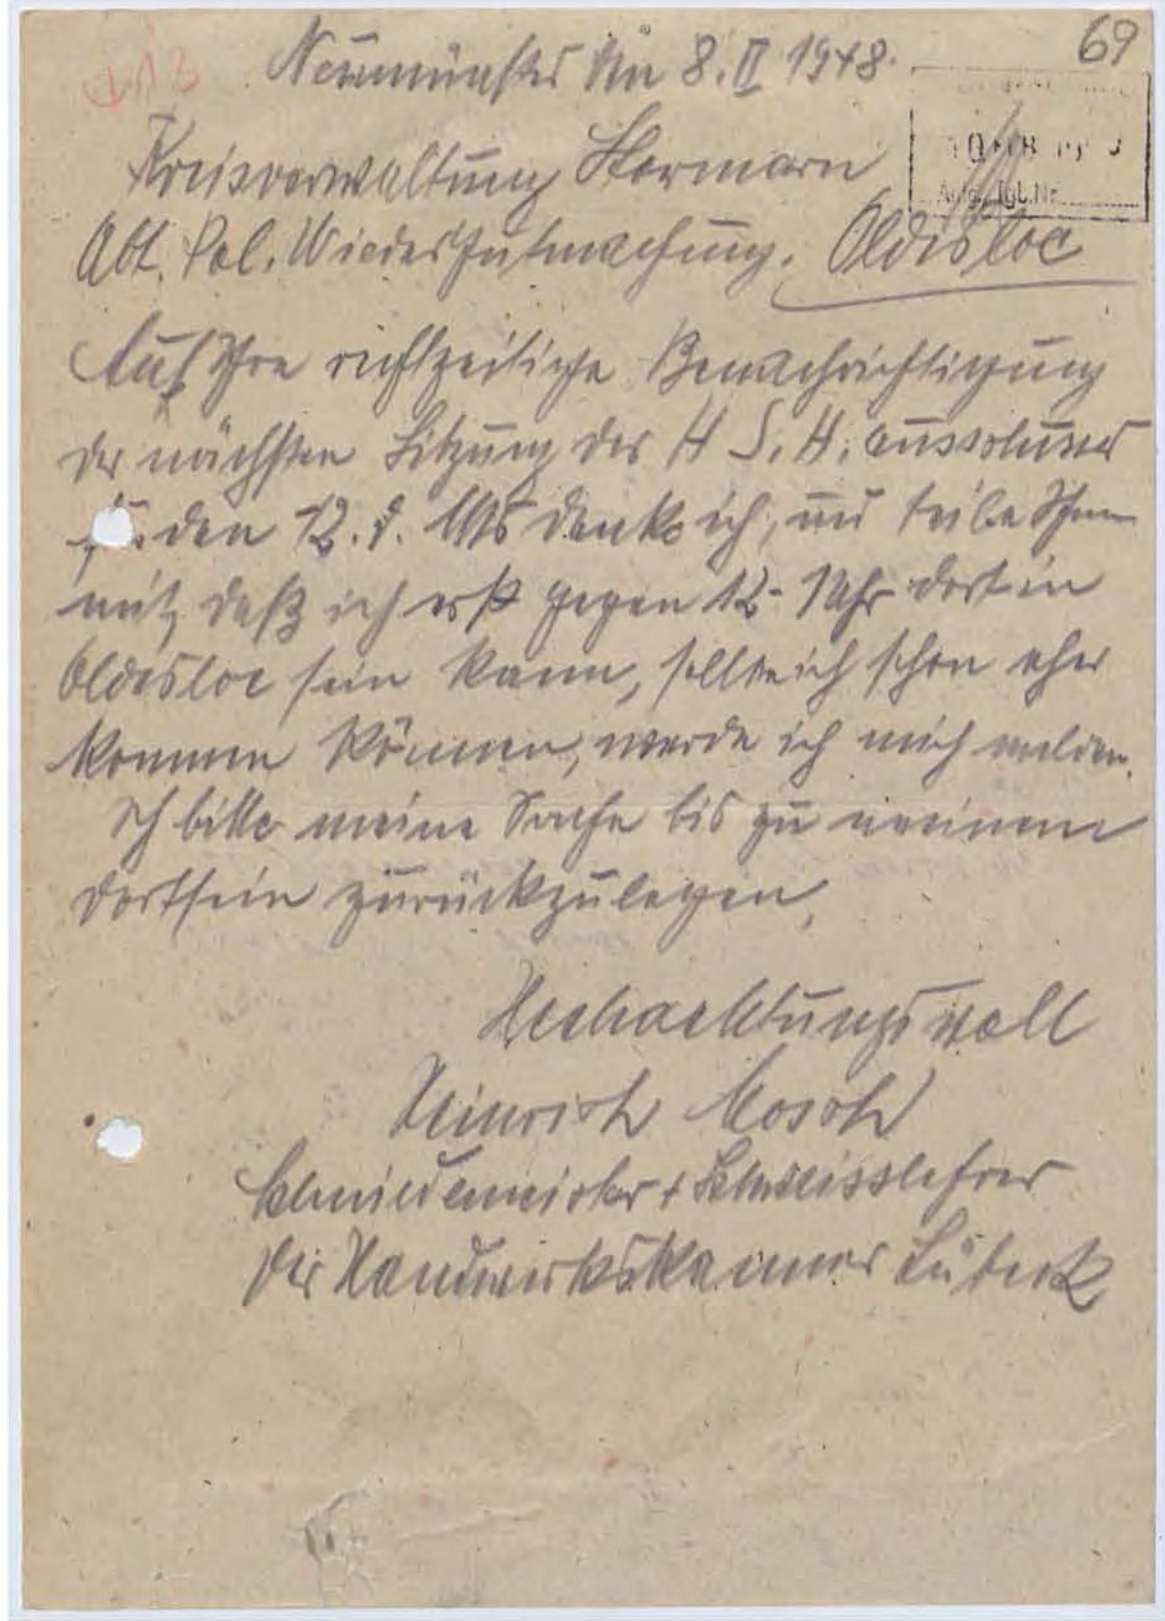 69
Neumünster den 8. II 1948.
Kreisverwaltung Stormarn
Abt. Pol. Wiedergutmachung. Oldesloe
Auf Ihre rechtzeitige Benachrichtigung
der nächsten Sitzung des K S. H. Ausschusses
den 12. d. Mts danke ich, und teile Ihnen
mit, daß ich erst gegen 12 - 1 Uhr dort in
Oldesloe sein kann, sollte ich schon eher
kommen können, werde ich mich melden.
Ich bitte meine Sache bis zu meinem
dortsein zurückzulegen.
Hochachtungsvoll
Heinrich
Schmiedemeister + Schweisslehrer
der Handwerkskammer Lübeck